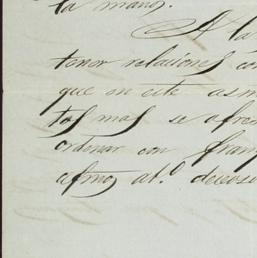 la mano.
A la
tener relaciones con
que en este asun
tas mas se ofrez
ordenar con fran
afmo, at.º